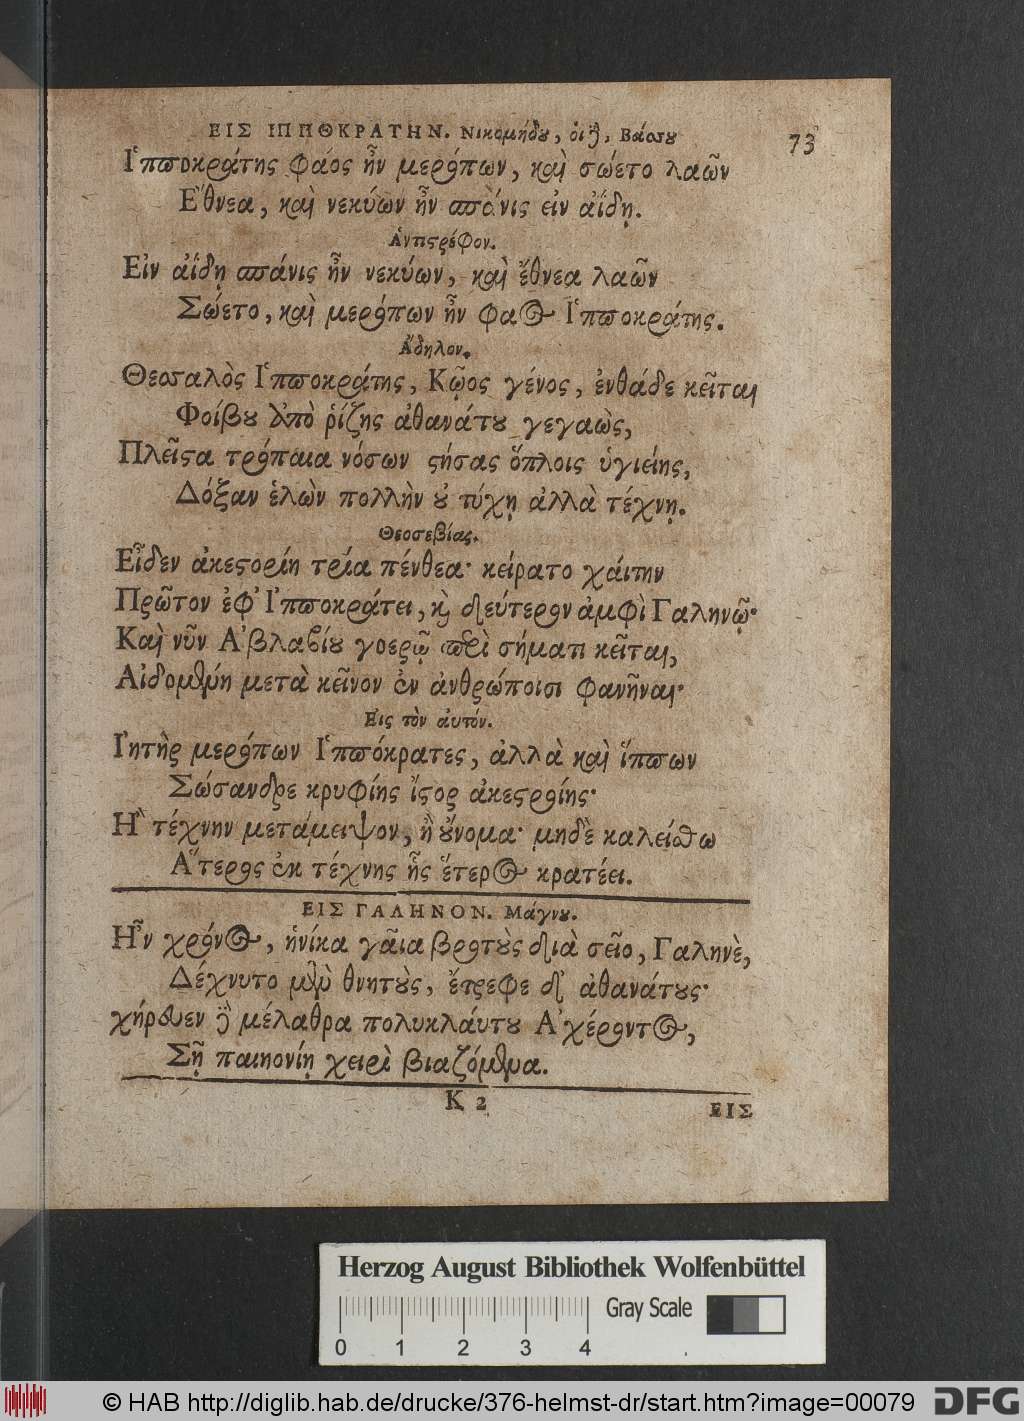 ΕΙΣ ΙΠΠΟΚΡΑΤΗΝ. Νικομήδου, οἱ δὲ, Βάσσου
73
Ἱπποκράτης φάος ἦν μερόπων, καὶ σώετο λαῶν
Ἔθνεα, καὶ νεκύων ἦν σπάνις εἰν ἀΐδῃ.
Ἀντιστρέφον.
Εἰν ἀΐδῃ σπάνις ἦν νεκύων, καὶ ἔθνεα λαῶν
Σώετο, καὶ μερόπων ἦν φάος Ἱπποκράτης.
Ἄδηλον.
Θεσσαλὸς Ἱπποκράτης, Κῷος γένος, ἐνθάδε κεῖται
Φοίβου ἀπὸ ῥίζης ἀθανάτου γεγαὼς,
Πλεῖστα τρόπαια νόσων στήσας ὅπλοις ὑγιείης,
Δόξαν ἑλὼν πολλὴν οὐ τύχῃ ἀλλὰ τέχνῃ.
Θεοσεβίας.
Εἶδεν ἀκεστορίη τρία πένθεα· κείρατο χαίτην
Πρῶτον ἐφ' Ἱπποκράτει, καὶ δεύτερον ἀμφὶ Γαληνῷ·
Καὶ νῦν Ἀβλαβίου γοερῷ περὶ σήματι κεῖται,
Αἰδομένη μετὰ κεῖνον ἐν ἀνθρώποισι φανῆναι·
Εἰς τὸν αὐτόν.
Ἰητὴρ μερόπων Ἱππόκρατες, ἀλλὰ καὶ ἵππων
Σώσανδρε κρυφίης ἴστορ ἀκεστορίης·
Ἢ τέχνην μετάμειψον, ἢ οὔνομα· μηδὲ καλείσθω
Ἅτερος ἐκ τέχνης ἧς ἕτερος κρατέει.
ΕΙΣ ΓΑΛΗΝΟΝ. Μάγνου.
Ἦν χρόνος, ἡνίκα γαῖα βροτοὺς διὰ σεῖο, Γαληνὲ,
Δέχνυτο μὲν θνητοὺς, ἔτρεφε δ' ἀθανάτους·
χήρευεν δὲ μέλαθρα πολυκλαύτου Ἀχέροντος,
Σῇ παιηονίῃ χειρὶ βιαζόμενα.
Κ 2
ΕΙΣ
Herzog August Bibliothek Wolfenbüttel
Gray Scale
0 1 2 3 4
© HAB http://diglib.hab.de/drucke/376-helmst-dr/start.htm?image=00079
DFG